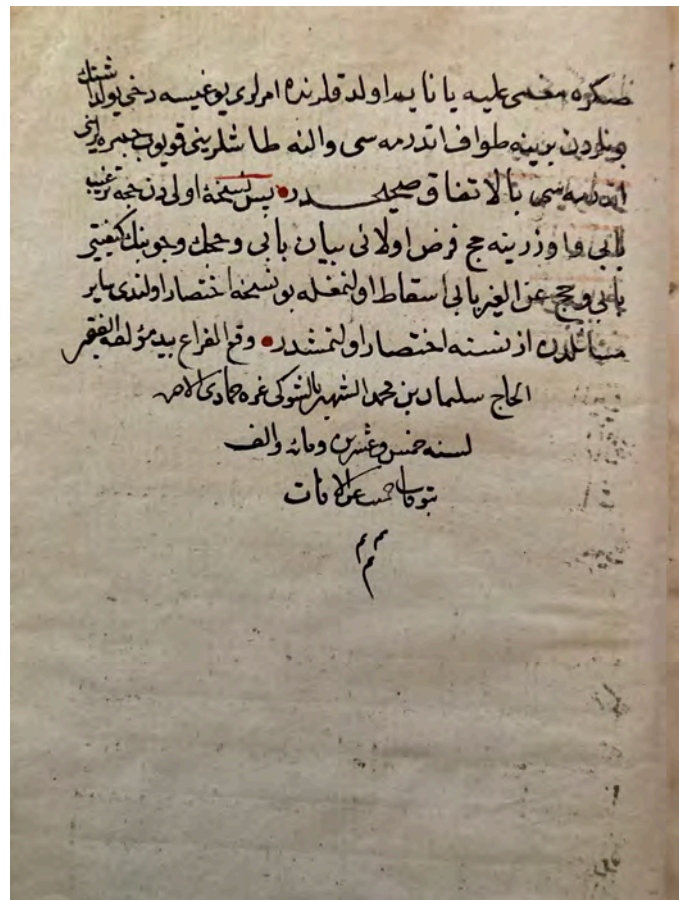 صكره مغمى عليه يا نايم اولدقلرنده امرلرى يوغيسه دخى يولداشنك
بونلردن برينه طواف اتدرمه سى والنه طاشلرينى قويوب جمره يراتى
اتدرمه سى بالاتفاق صحيحدر پس نسخهٔ اولى دن حجه ترغيب
بابى و اوزرينه حج فرض اولانى بيان بابى وحجك وجوبنك كيفيتى
بابى وحج عن الغير بابى اسقاط اولنمغله بو نسخه اختصار اولندى ساير
مسائلدن از نسنه اختصار اولنمشدر وقع الفراغ بيد مؤلفه الفقير
الحاج سليمان بن محمد الشهير بالشوكى غره جمادى الاخر
لسنه خمس وعشرين ومائه والف
بتوقات حميت عن الافات
م م
م